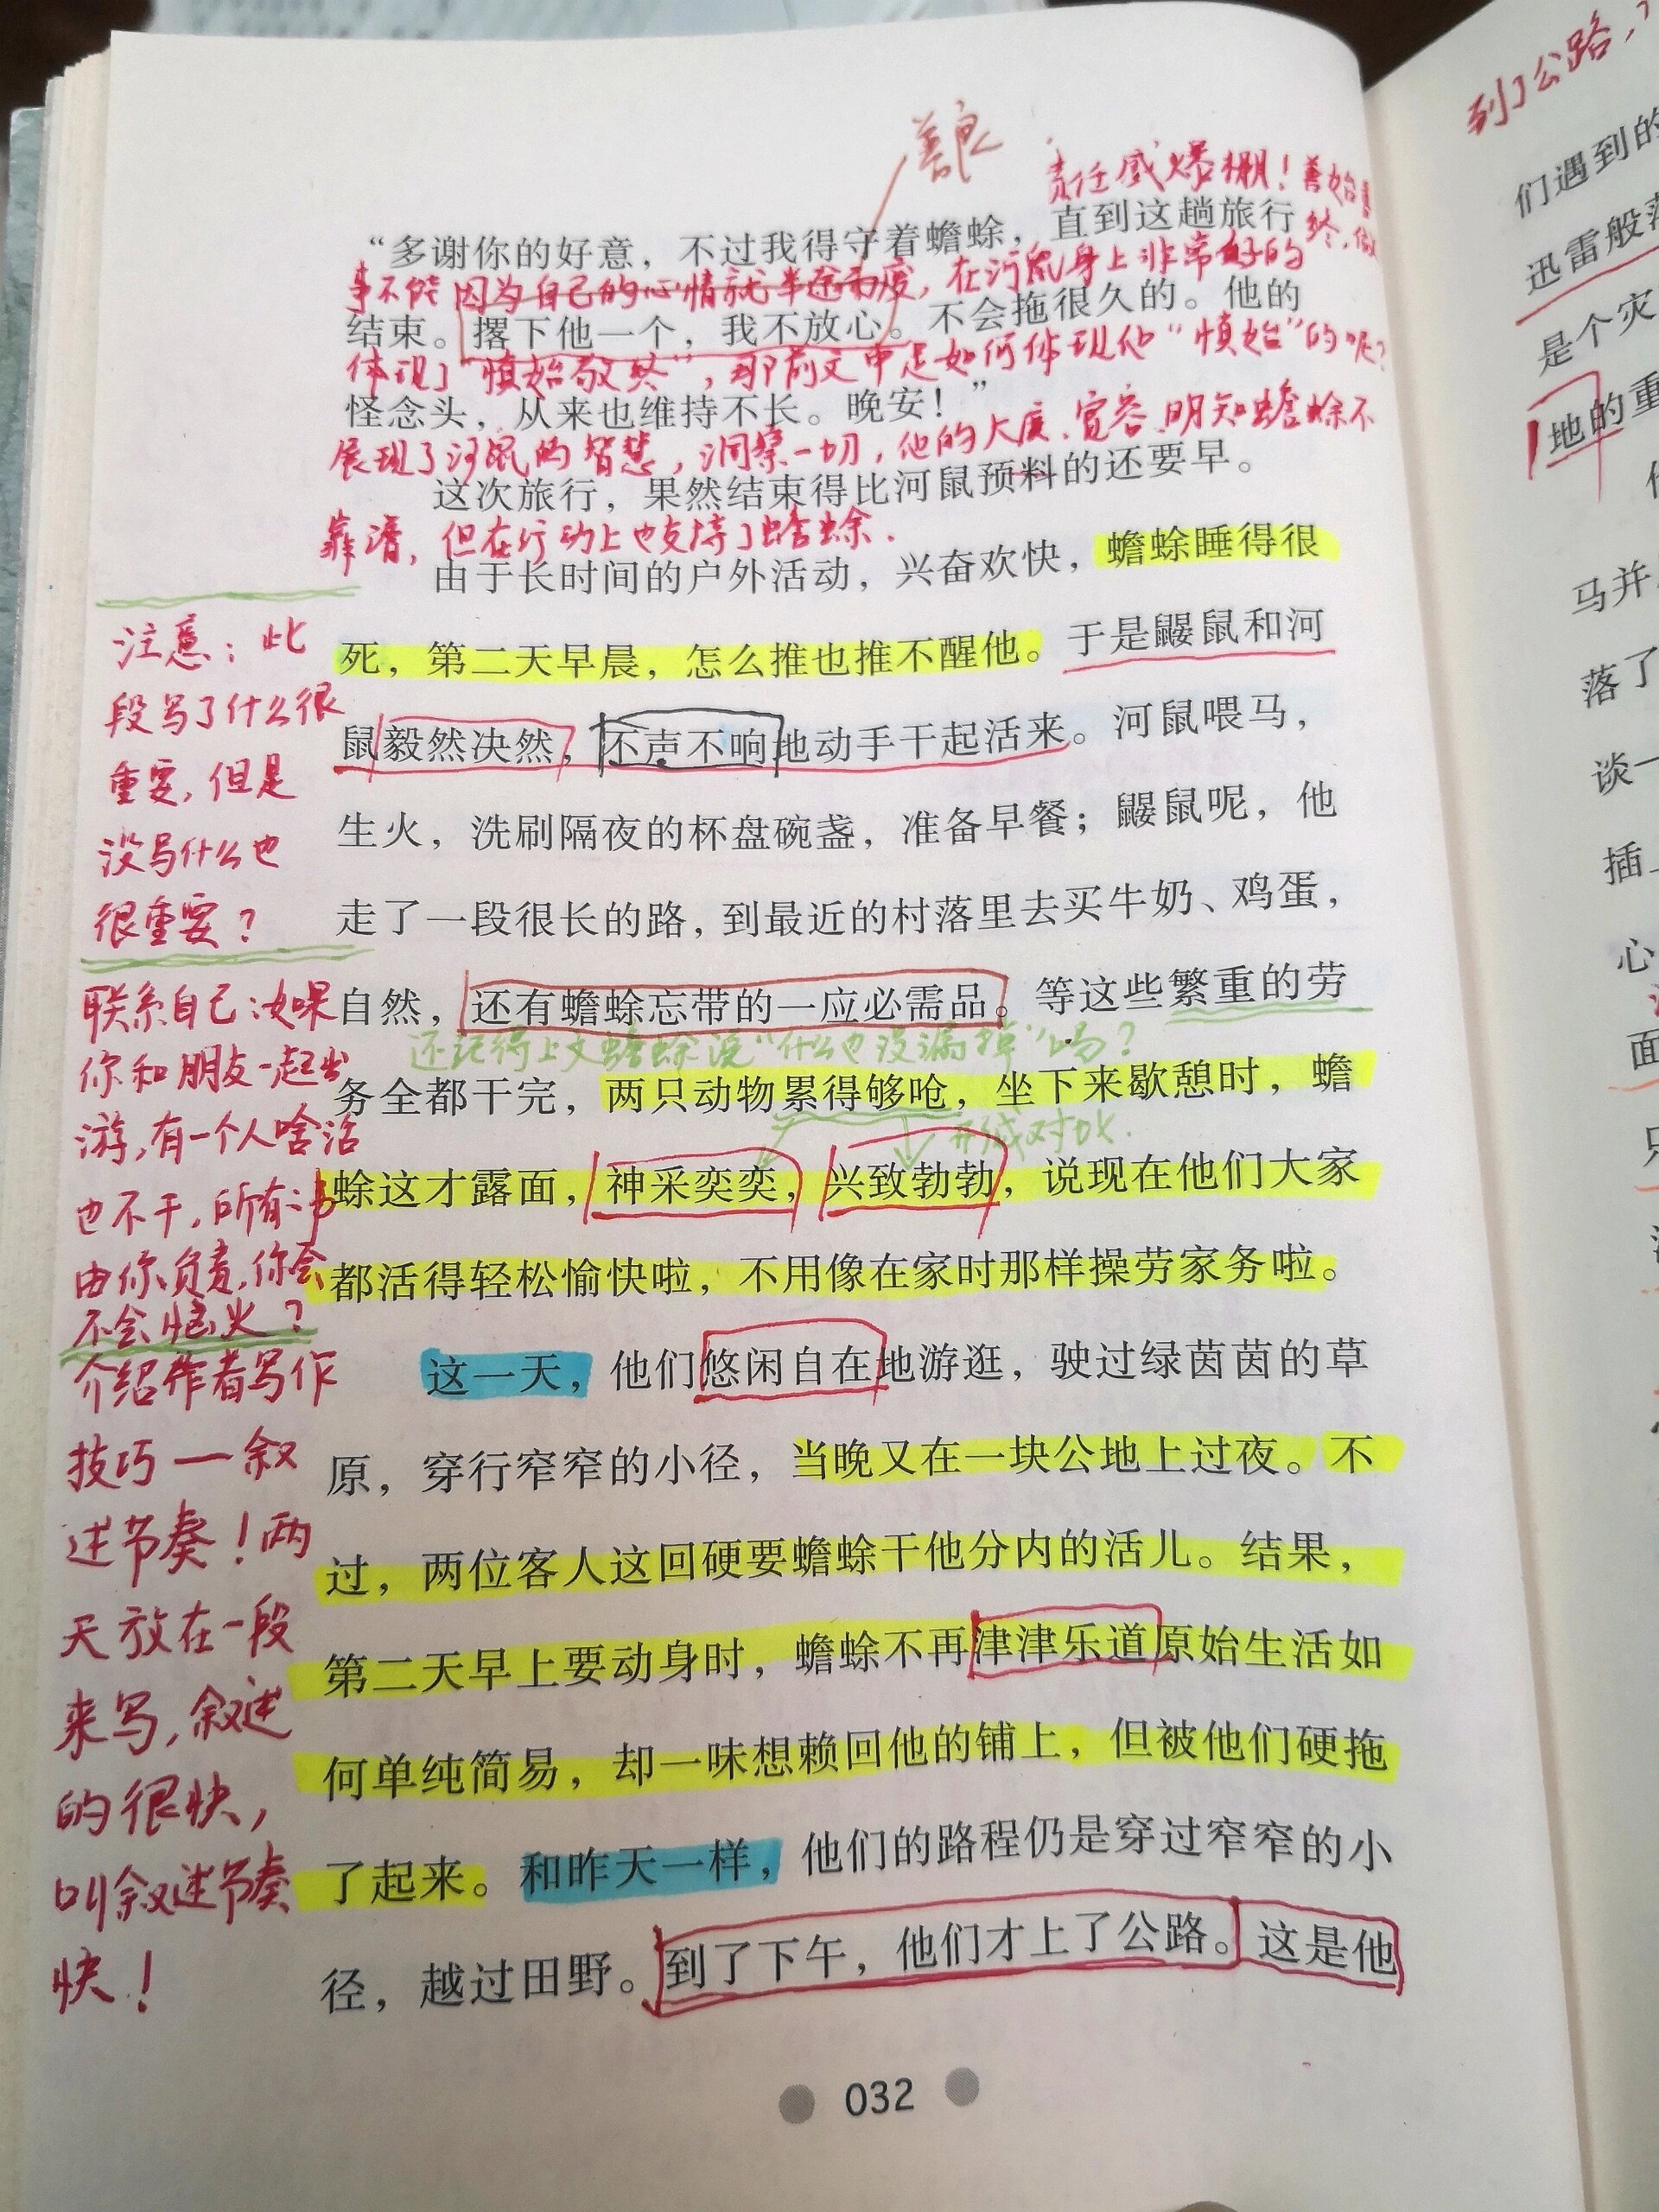 善良
责任感爆棚！善始善
“多谢你的好意，不过我得守着蟾蜍，直到这趟旅行
终，做
事不能因为自己的心情就半途而废，在河鼠身上非常好的
结束。撂下他一个，我不放心。不会拖很久的。他的
体现了“慎始敬终”，那前文中是如何体现他“慎始”的呢？
怪念头，从来也维持不长。晚安！”
展现了河鼠的智慧，洞察一切，他的大度、宽容，明知蟾蜍不
这次旅行，果然结束得比河鼠预料的还要早。
靠谱，但在行动上也支持了蟾蜍.
由于长时间的户外活动，兴奋欢快，蟾蜍睡得很
死，第二天早晨，怎么推也推不醒他。于是鼹鼠和河
鼠毅然决然，不声不响地动手干起活来。河鼠喂马，
生火，洗刷隔夜的杯盘碗盏，准备早餐；鼹鼠呢，他
走了一段很长的路，到最近的村落里去买牛奶、鸡蛋，
自然，还有蟾蜍忘带的一应必需品。等这些繁重的劳
还记得上文蟾蜍说“什么也没漏掉”吗？
务全都干完，两只动物累得够呛，坐下来歇憩时，蟾
形成对比.
蜍这才露面，神采奕奕，兴致勃勃，说现在他们大家
都活得轻松愉快啦，不用像在家时那样操劳家务啦。
这一天，他们悠闲自在地游逛，驶过绿茵茵的草
原，穿行窄窄的小径，当晚又在一块公地上过夜。不
过，两位客人这回硬要蟾蜍干他分内的活儿。结果，
第二天早上要动身时，蟾蜍不再津津乐道原始生活如
何单纯简易，却一味想赖回他的铺上，但被他们硬拖
了起来。和昨天一样，他们的路程仍是穿过窄窄的小
径，越过田野。到了下午，他们才上了公路。这是他
注意：此
段写了什么很
重要，但是
没写什么也
很重要？
联系自己：如果
你和朋友一起出
游，有一个人啥活
也不干，所有
由你负责，你会
不会恼火？
介绍作者写作
技巧—叙
述节奏！两
天放在一段
来写，叙述
的很快，
叫叙述节奏
快！
032
到了公路，
们遇到的
迅雷般
是个灾
地的重
马并
落了
谈一
插
心
面